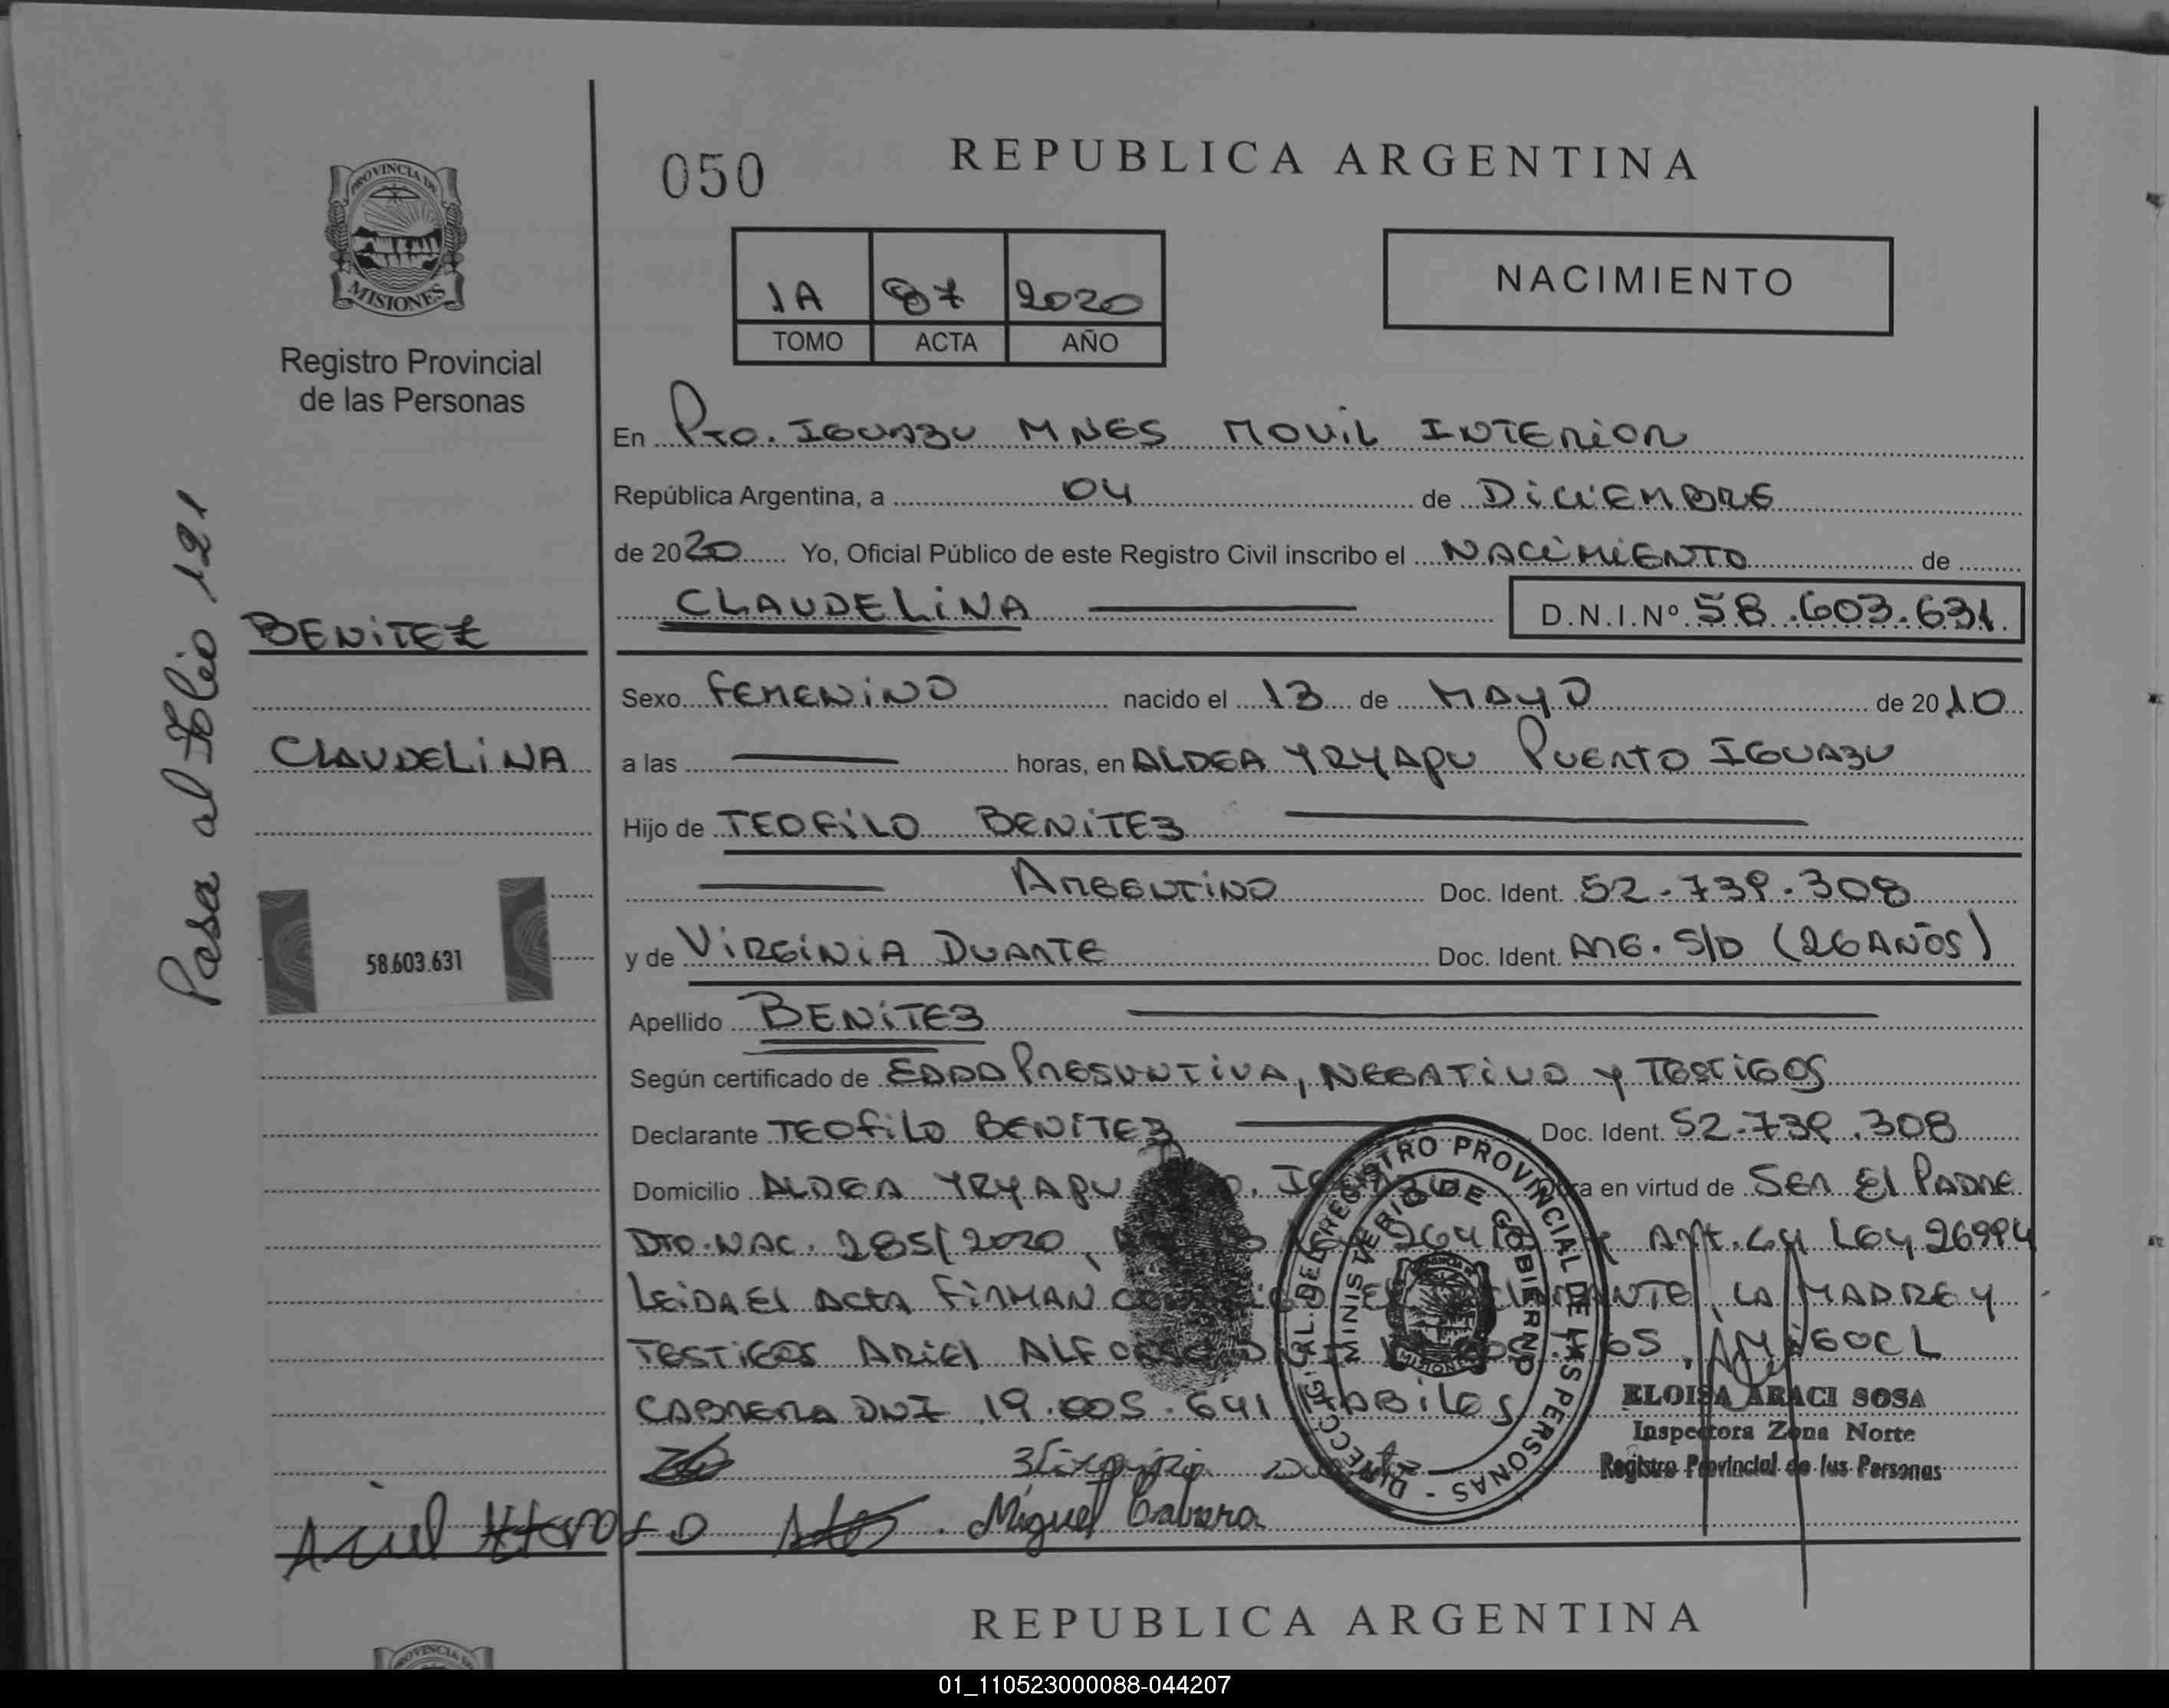 PROVINCIA DE
MISIONES
Registro Provincial
de las Personas
Pasa al Folio 121
BENITEZ
CLAUDELINA
58.603.631
050
REPUBLICA ARGENTINA
1A 87 2020
TOMO ACTA AÑO
NACIMIENTO
En PTO. IGUAZU MNES MOVIL INTERIOR
República Argentina, a 04 de DICIEMBRE
de 2020 Yo, Oficial Público de este Registro Civil inscribo el NACIMIENTO de
CLAUDELINA D.N.I.Nº 58.603.631.
Sexo FEMENINO nacido el 13 de MAYO de 2010
a las horas, en ALDEA YRYAPU PUERTO IGUAZU
Hijo de TEOFILO BENITEZ
ARGENTINO Doc. Ident. 52.739.308
y de VIRGINIA DUARTE Doc. Ident. ARG. S/D (26 AÑOS)
Apellido BENITEZ
Según certificado de EDAD PRESUNTIVA, NEGATIVO Y TESTIGOS
Declarante TEOFILO BENITEZ Doc. Ident. 52.739.308
Domicilio ALDEA YRYAPU en virtud de SER EL PADRE
DTO. NAC. 285/2020, ART. 64 LEY 26994
LEIDA EL ACTA FIRMAN LA MADRE Y
TESTIGOS ARIEL
CABRERA DNI 19.005.641 HABILES
DIRECC. GRAL. DEL REGISTRO PROVINCIAL DE LAS PERSONAS
MINISTERIO DE GOBIERNO
MISIONES
ELOISA ARACI SOSA
Inspectora Zona Norte
Registro Provincial de las Personas
Ariel Miguel Cabrera
REPUBLICA ARGENTINA
01_110523000088-044207